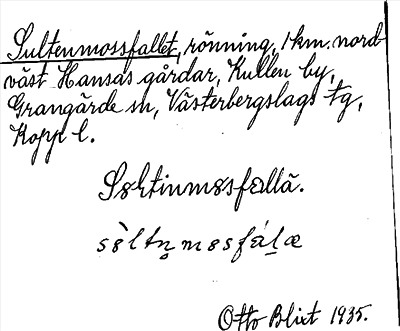 Sultenmossfallet, rönning, 1 km. nord
väst Hansas gårdar, Kullen by,
Grangärde sn, Västerbergslags tg,
Kopp l.
sòltn̥mosfáḷæ
Otto Blixt 1935.